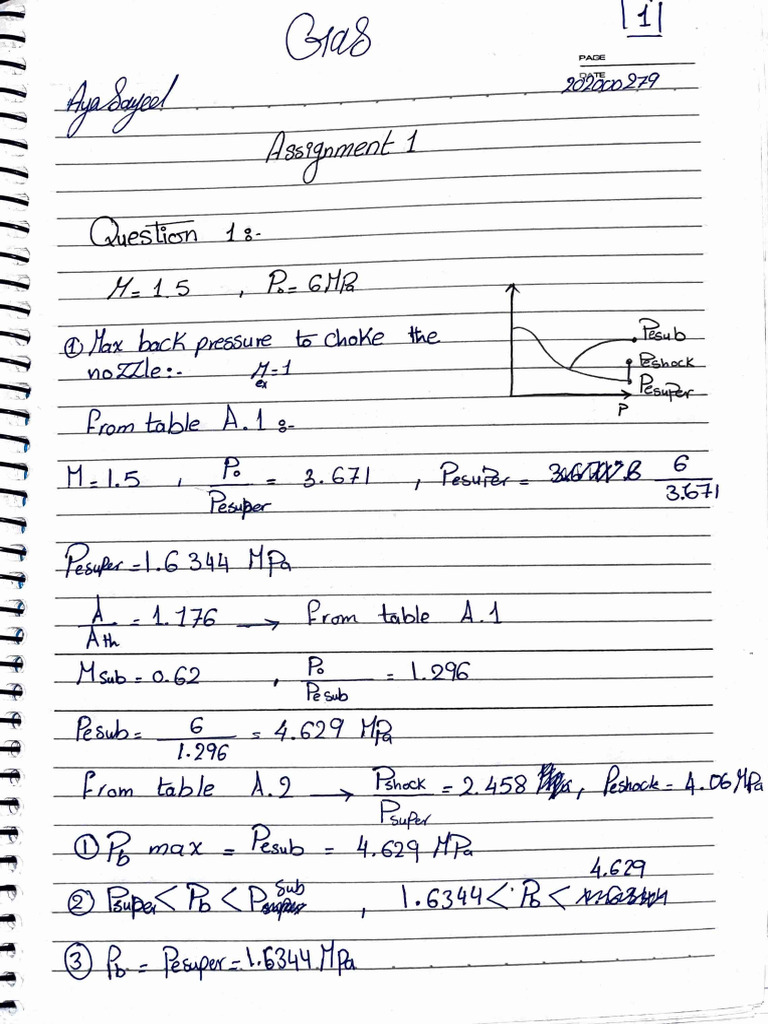 Gas
1
PAGE
DATE
202000279
Aya Sayeel
Assignment 1
Question 1:-
M = 1.5 , P₀ = 6 MPa
① Max back pressure to choke the
nozzle:- Mex = 1
Pesub
Peshock
Pesuper
P
from table A.1 :-
M = 1.5 , P₀/Pesuper = 3.671 , Pesuper = 6/3.671
Pesuper = 1.6344 MPa
A/Ath = 1.176 → from table A.1
Msub = 0.62 , P₀/Pesub = 1.296
Pesub = 6/1.296 = 4.629 MPa
from table A.2 → Pshock/Psuper = 2.458 , Peshock = 4.06 MPa
① Pb max = Pesub = 4.629 MPa
② Psuper < Pb < Psub , 1.6344 < Pb < 4.629
③ Pb = Pesuper = 1.6344 MPa